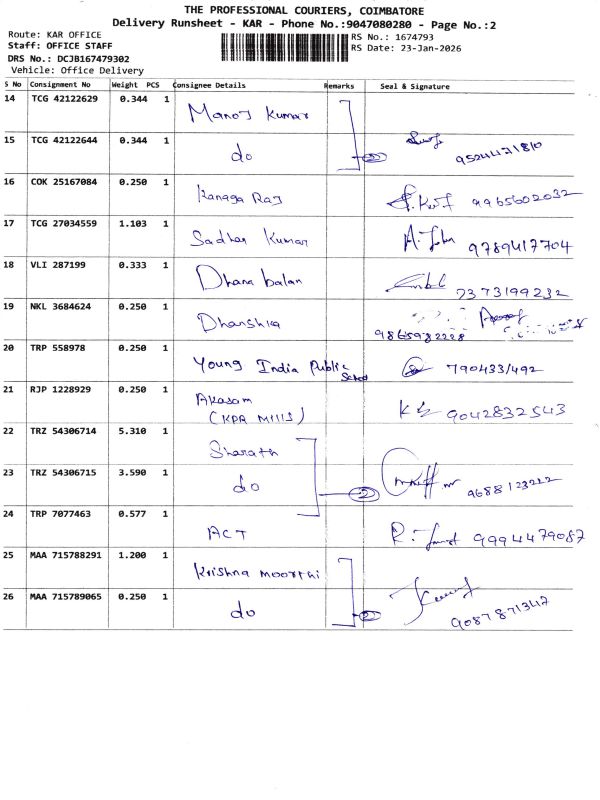 THE PROFESSIONAL COURIERS, COIMBATORE
Delivery Runsheet - KAR - Phone No.:9047080280 - Page No.:2
Route: KAR OFFICE
Staff: OFFICE STAFF
RS No.: 1674793
RS Date: 23-Jan-2026
DRS No.: DCJB167479302
Vehicle: Office Delivery
S No Consignment No Weight PCS Consignee Details Remarks Seal & Signature
14 TCG 42122629 0.344 1 Manoj Kumar
15 TCG 42122644 0.344 1 do 2 9524471810
16 COK 25167084 0.250 1 Kanaga Raj 9965602032
17 TCG 27034559 1.103 1 Sadhan Kumar 9789417704
18 VLI 287199 0.333 1 Dhana balan 7373199232
19 NKL 3684624 0.250 1 Dharshia 9865982228
20 TRP 558978 0.250 1 Young India Public School 790433/492
21 RJP 1228929 0.250 1 Akasam (KPR MILLS) 9042832543
22 TRZ 54306714 5.310 1 Sharath
23 TRZ 54306715 3.590 1 do 2 9688123222
24 TRP 7077463 0.577 1 ACT 9994479087
25 MAA 715788291 1.200 1 Krishna moorthi
26 MAA 715789065 0.250 1 do 2 9087871347